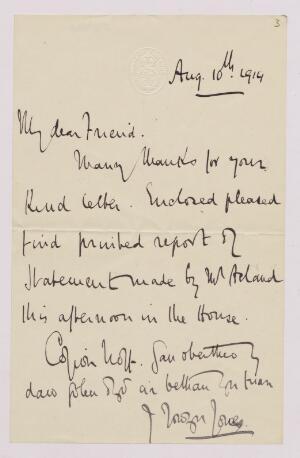 3
Aug. 10th 1914
My dear Friend.
Many thanks for your
kind letter. Enclosed pleased
find printed report of
Statement made by Mr Acland
this afternoon in the House.
Cofion
daw
Jones